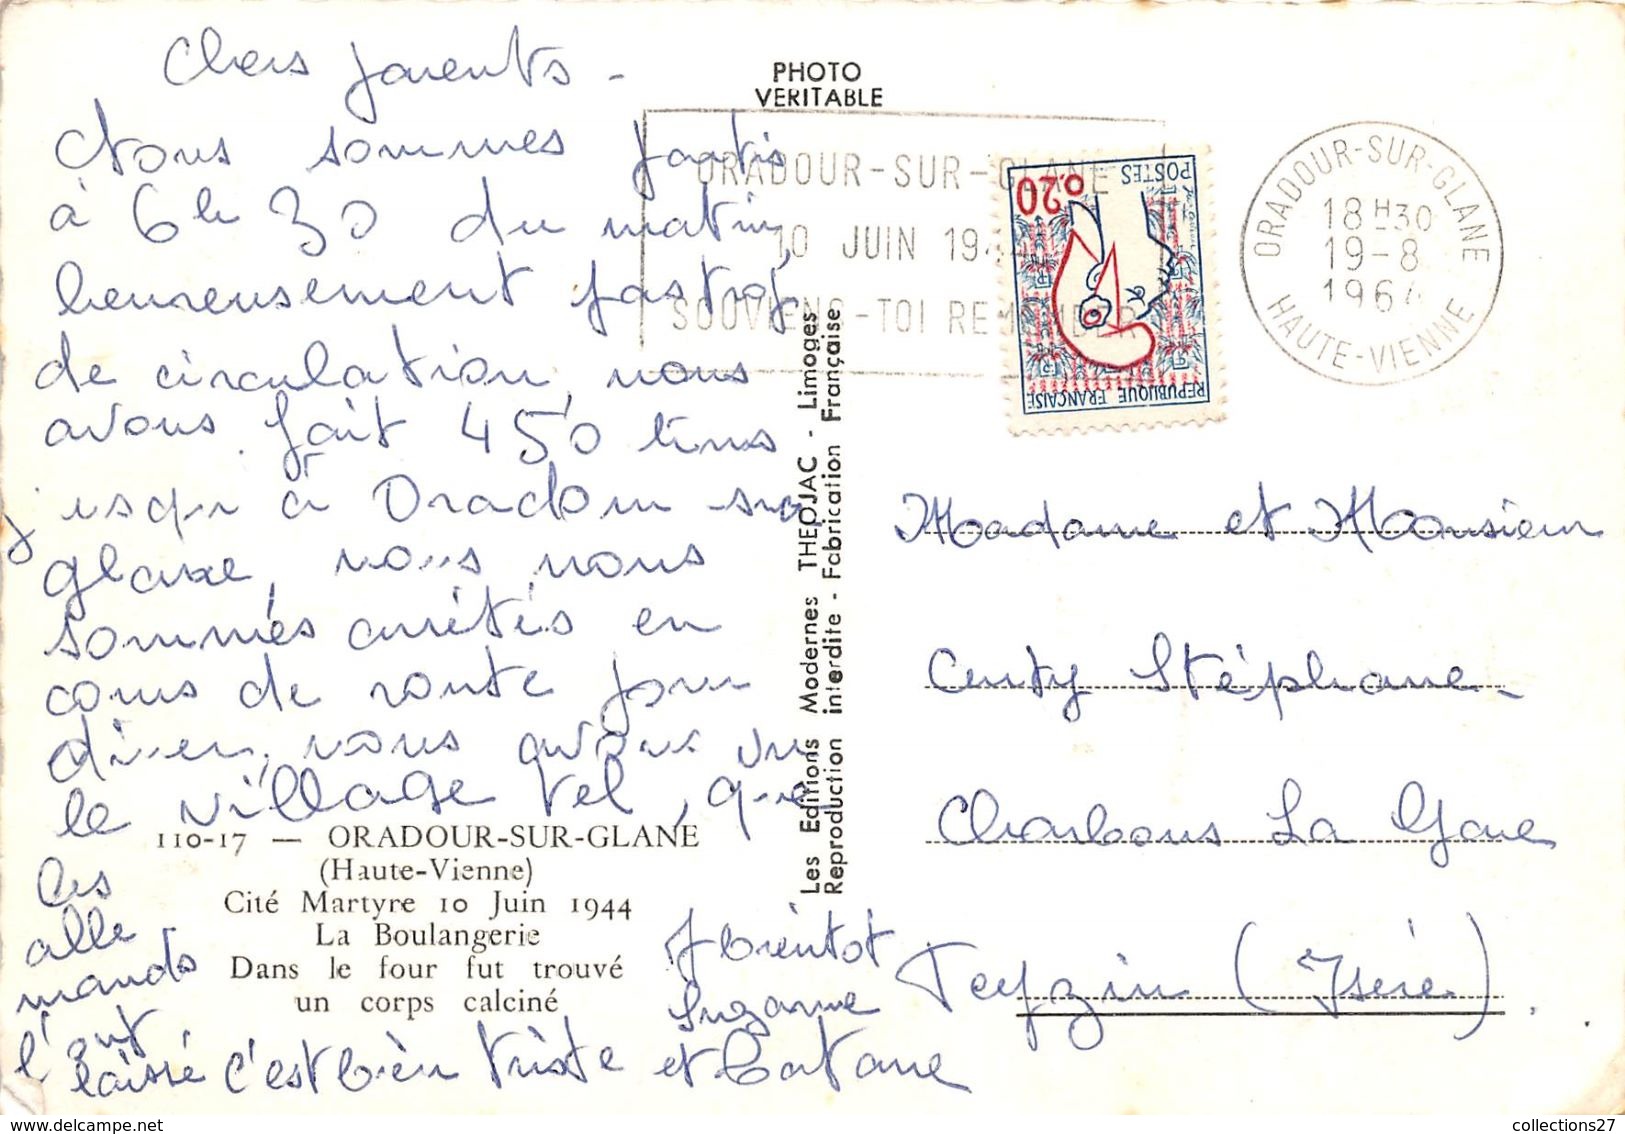 Chers parents -
Nous sommes partis
à 6h 30 du matin,
heureusement pas trop
de circulation, nous
avons fait 450 kms
jusqu'à Oradour sur
glane, nous nous
sommes arrêtés en
cours de route pour
diner, nous avons vu
le village tel, que
les
alle
mands
l'ont
laissé c'est bien triste et
A bientot
Suzanne
PHOTO
VERITABLE
ORADOUR-SUR-GLANE
10 JUIN 1944
SOUVIENS-TOI REMEMBER
0.20
POSTES
REPUBLIQUE FRANÇAISE
ORADOUR-SUR-GLANE
18 H30
19-8
1964
HAUTE-VIENNE
Les Editions Modernes THEOJAC - Limoges
Reproduction interdite - Fabrication Française
Madame et Monsieur
Stéphane
Charbons La Gare
Feyzin (Isère).
110-17 — ORADOUR-SUR-GLANE
(Haute-Vienne)
Cité Martyre 10 Juin 1944
La Boulangerie
Dans le four fut trouvé
un corps calciné
collections27
www.delcampe.net